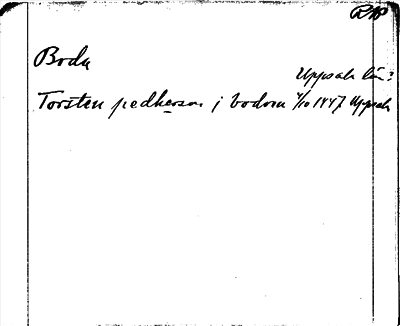 RAP
Boda
Uppsala län?
Torsten pedherson j bodom 4/10 1447 Uppsala